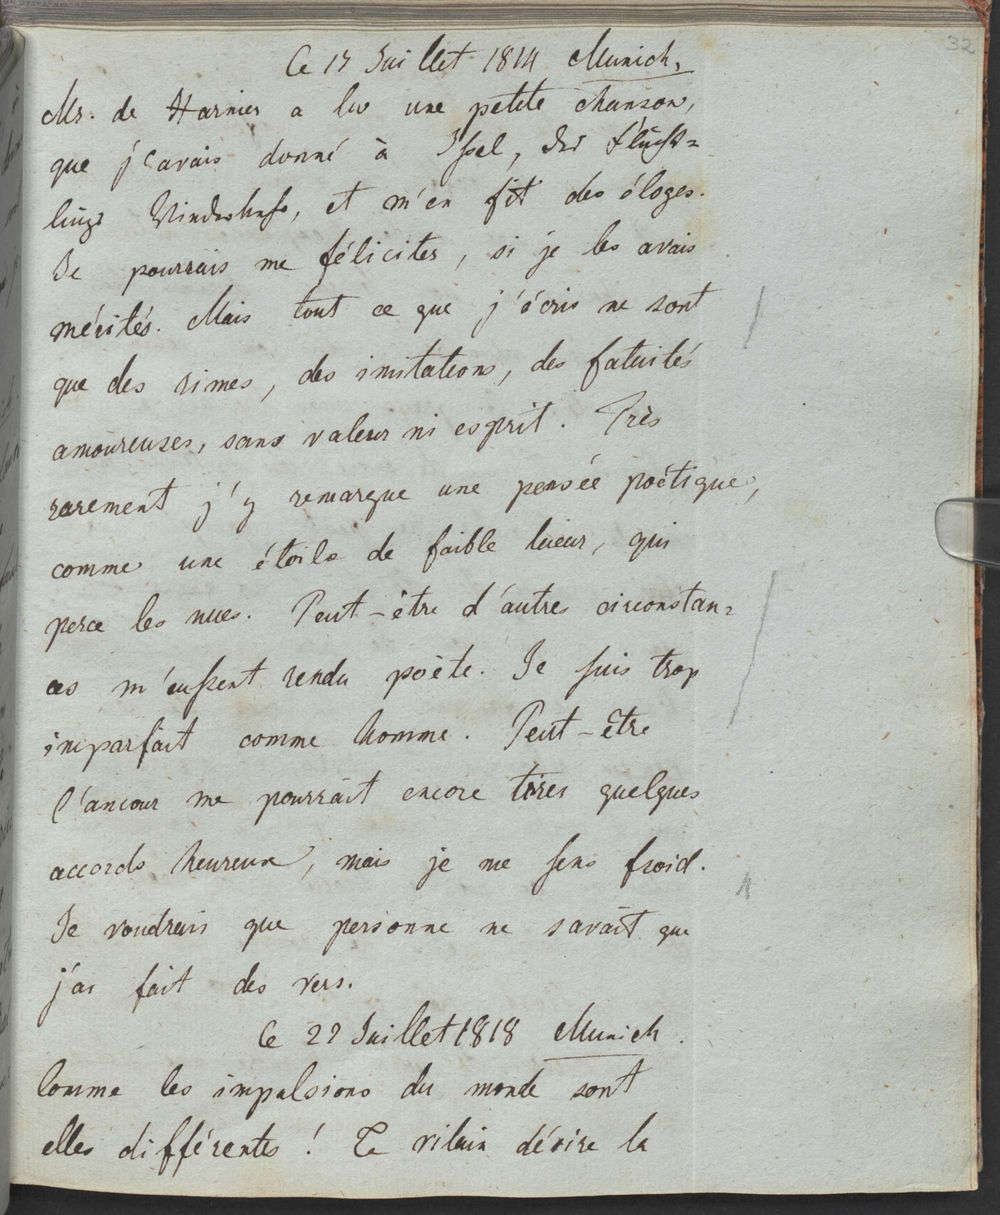 32
Ce 17 Juillet 1814 Munich.
Mr. de Harnier a lu une petite chanson,
que j'avais donné à Issel, des Flücht=
lings, et m'en fit des éloges.
Je pourrais me féliciter, si je les avais
mérités. Mais tout ce que j'écris ne sont
que des rimes, des imitations, des fatuités
amoureuses, sans valeur ni esprit. Très
rarement j'y remarque une pensée poétique,
comme une étoile de faible lueur, qui
perce les nues. Peut-être d'autres circonstan=
ces m'eussent rendu poète. Je suis trop
imparfait comme homme. Peut-être
l'amour me pourrait encore tirer quelques
accords heureux, mais je me sens froid.
Je voudrais que personne ne savait que
j'ai fait des vers.
Ce 22 Juillet 1818 Munich.
Comme les impulsions du monde sont
elles différentes! Ce vilain désire la